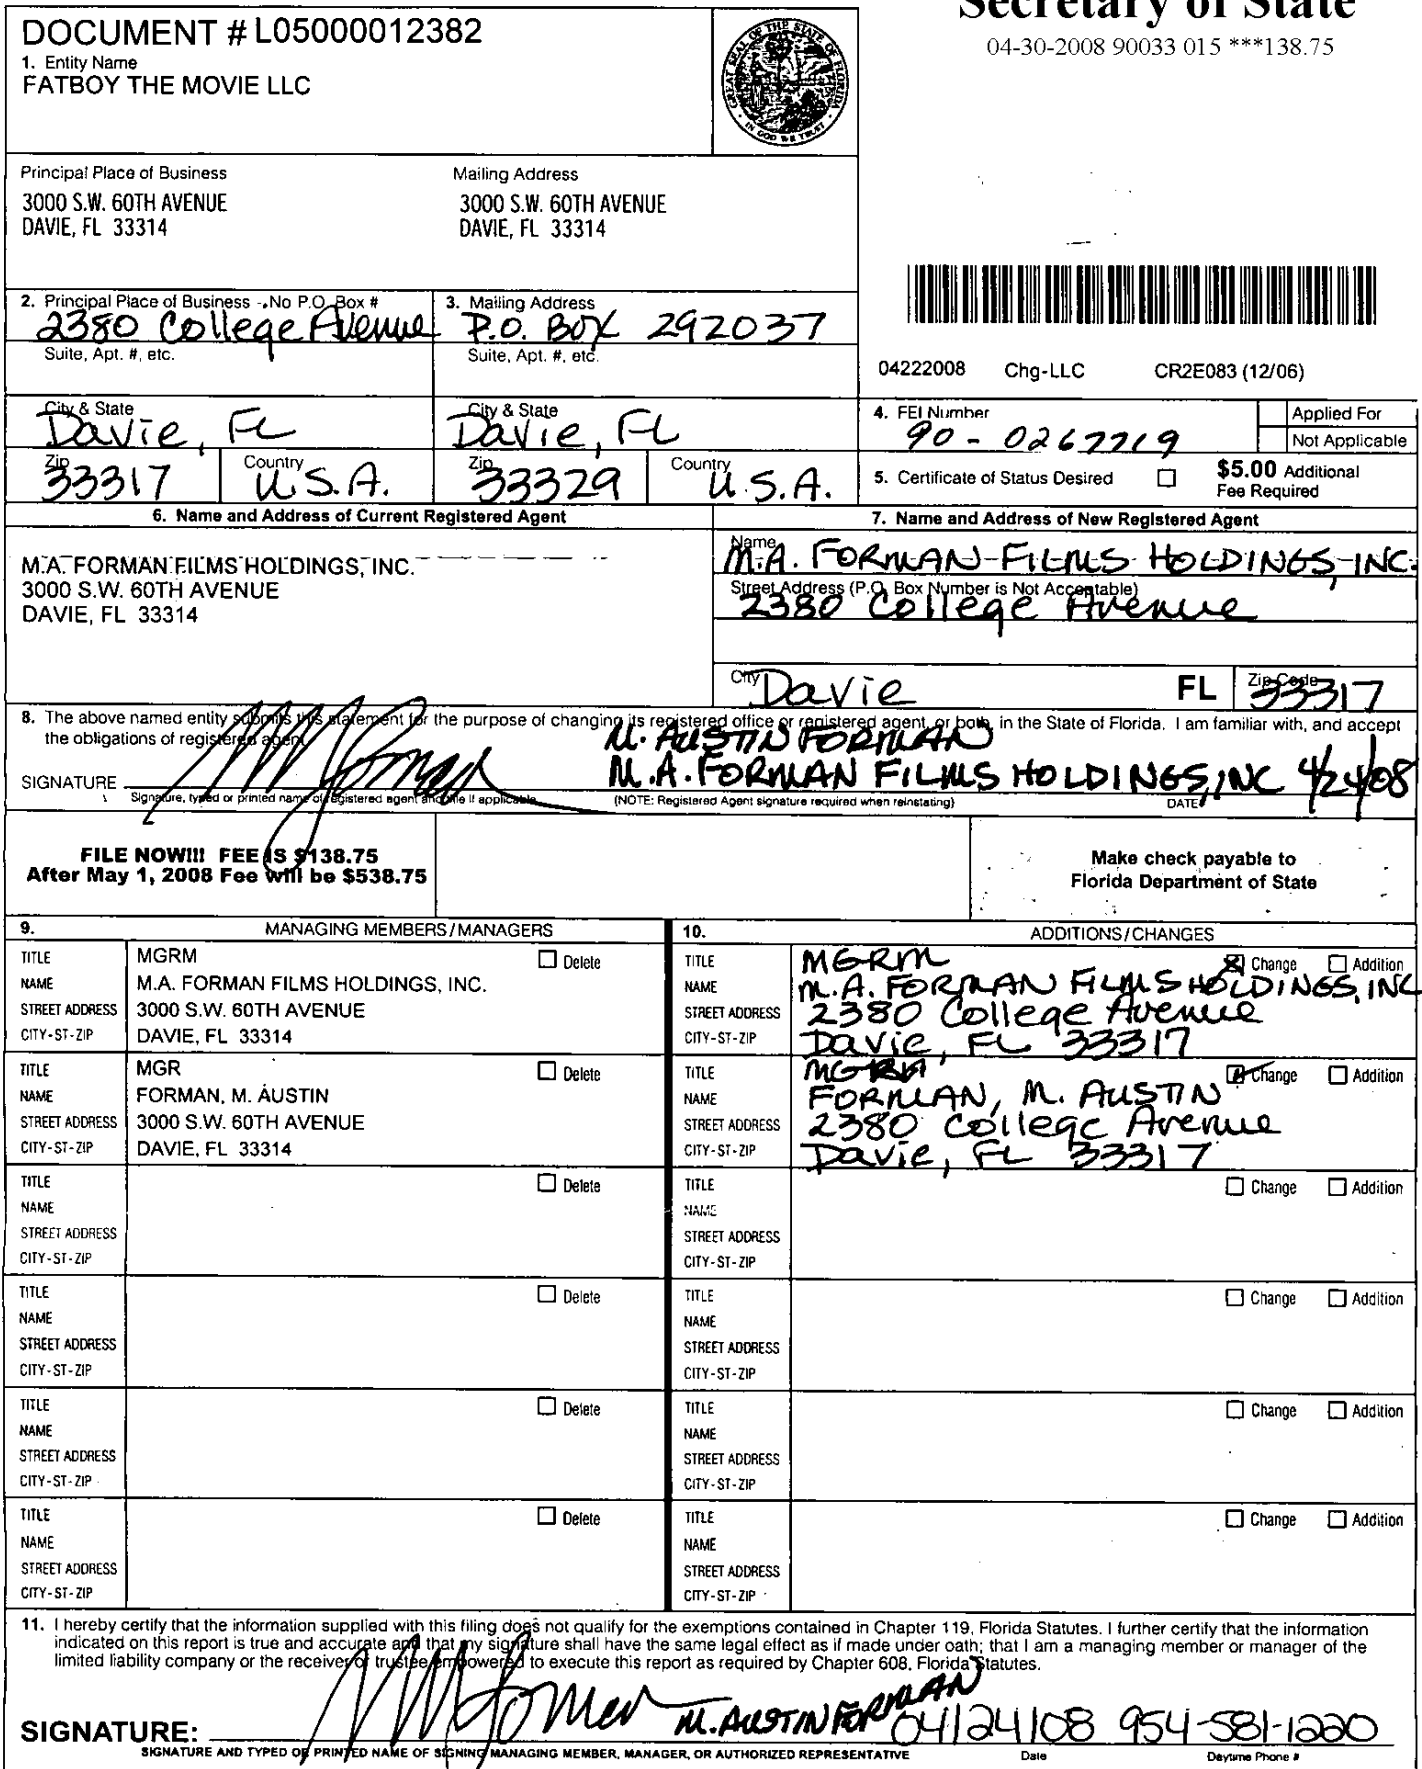 Secretary of State
04-30-2008 90033 015 ***138.75
DOCUMENT # L05000012382
1. Entity Name
FATBOY THE MOVIE LLC
GREAT SEAL OF THE STATE OF FLORIDA
IN GOD WE TRUST
Principal Place of Business
3000 S.W. 60TH AVENUE
DAVIE, FL 33314
Mailing Address
3000 S.W. 60TH AVENUE
DAVIE, FL 33314
2. Principal Place of Business - No P.O. Box #
2380 College Avenue
Suite, Apt. #, etc.
3. Mailing Address
P.O. Box 292037
Suite, Apt. #, etc.
04222008 Chg-LLC CR2E083 (12/06)
City & State
Davie, FL
City & State
Davie, FL
Zip
33317
Country
U.S.A.
Zip
33329
Country
U.S.A.
4. FEI Number
90-0267719
Applied For
Not Applicable
5. Certificate of Status Desired
$5.00 Additional
Fee Required
6. Name and Address of Current Registered Agent
M.A. FORMAN FILMS HOLDINGS, INC.
3000 S.W. 60TH AVENUE
DAVIE, FL 33314
7. Name and Address of New Registered Agent
Name
M.A. FORMAN FILMS HOLDINGS, INC.
Street Address (P.O. Box Number is Not Acceptable)
2380 College Avenue
City
Davie
FL
Zip Code
33317
8. The above named entity submits this statement for the purpose of changing its registered office or registered agent, or both, in the State of Florida. I am familiar with, and accept
the obligations of registered agent.
M. AUSTIN FORMAN
SIGNATURE M.A. FORMAN FILMS HOLDINGS, INC 4/24/08
Signature, typed or printed name of registered agent and title if applicable. (NOTE: Registered Agent signature required when reinstating) DATE
FILE NOW!!! FEE IS $138.75
After May 1, 2008 Fee will be $538.75
Make check payable to
Florida Department of State
9. MANAGING MEMBERS/MANAGERS
TITLE MGRM Delete
NAME M.A. FORMAN FILMS HOLDINGS, INC.
STREET ADDRESS 3000 S.W. 60TH AVENUE
CITY-ST-ZIP DAVIE, FL 33314
TITLE MGR Delete
NAME FORMAN, M. AUSTIN
STREET ADDRESS 3000 S.W. 60TH AVENUE
CITY-ST-ZIP DAVIE, FL 33314
TITLE Delete
NAME
STREET ADDRESS
CITY-ST-ZIP
TITLE Delete
NAME
STREET ADDRESS
CITY-ST-ZIP
TITLE Delete
NAME
STREET ADDRESS
CITY-ST-ZIP
TITLE Delete
NAME
STREET ADDRESS
CITY-ST-ZIP
10. ADDITIONS/CHANGES
TITLE MGRM Change Addition
NAME M.A. FORMAN FILMS HOLDINGS, INC
STREET ADDRESS 2380 College Avenue
CITY-ST-ZIP Davie, FL 33317
TITLE Change Addition
NAME FORMAN, M. AUSTIN
STREET ADDRESS 2380 College Avenue
CITY-ST-ZIP Davie, FL 33317
TITLE Change Addition
NAME
STREET ADDRESS
CITY-ST-ZIP
TITLE Change Addition
NAME
STREET ADDRESS
CITY-ST-ZIP
TITLE Change Addition
NAME
STREET ADDRESS
CITY-ST-ZIP
TITLE Change Addition
NAME
STREET ADDRESS
CITY-ST-ZIP
11. I hereby certify that the information supplied with this filing does not qualify for the exemptions contained in Chapter 119, Florida Statutes. I further certify that the information
indicated on this report is true and accurate and that my signature shall have the same legal effect as if made under oath; that I am a managing member or manager of the
limited liability company or the receiver or trustee empowered to execute this report as required by Chapter 608, Florida Statutes.
SIGNATURE: M. AUSTIN FORMAN 04/24/08 954-581-1220
SIGNATURE AND TYPED OR PRINTED NAME OF SIGNING MANAGING MEMBER, MANAGER, OR AUTHORIZED REPRESENTATIVE Date Daytime Phone #